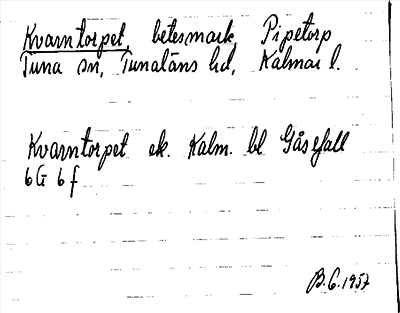 Kvarntorpet, betesmark, Pipetorp
Tuna sn, Tunaläns hd, Kalmar l.
Kvarntorpet ek. Kalm. bl Gåsefall
6G 6f
B.G. 1957